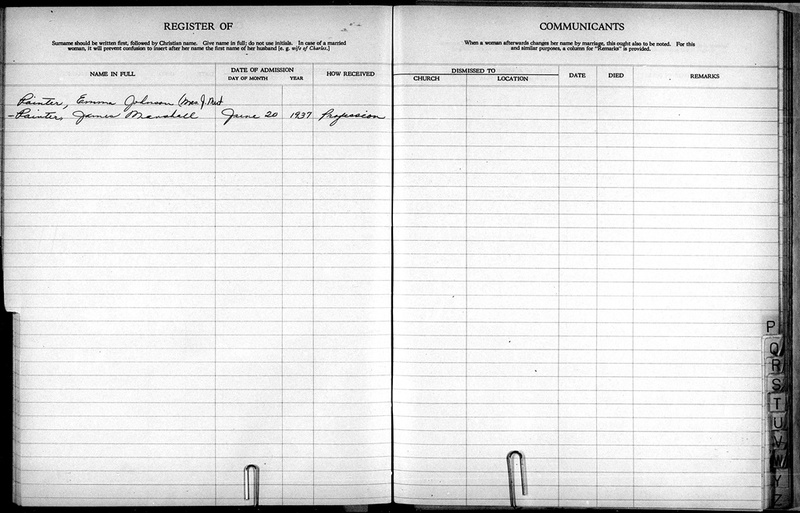 REGISTER OF
Surname should be written first, followed by Christian name. Give name in full; do not use initials. In case of a married
woman, it will prevent confusion to insert after her name the first name of her husband [e. g. wife of Charles.]
NAME IN FULL
DATE OF ADMISSION
DAY OF MONTH
YEAR
HOW RECEIVED
Painter, Emma Johnson (Mrs. J.
- Painter, James Marshall June 20 1937 Profession
COMMUNICANTS
When a woman afterwards changes her name by marriage, this ought also to be noted. For this
and similar purposes, a column for "Remarks" is provided.
DISMISSED TO
CHURCH
LOCATION
DATE
DIED
REMARKS
P
Q
R
S
T
U
V
W
Y
Z